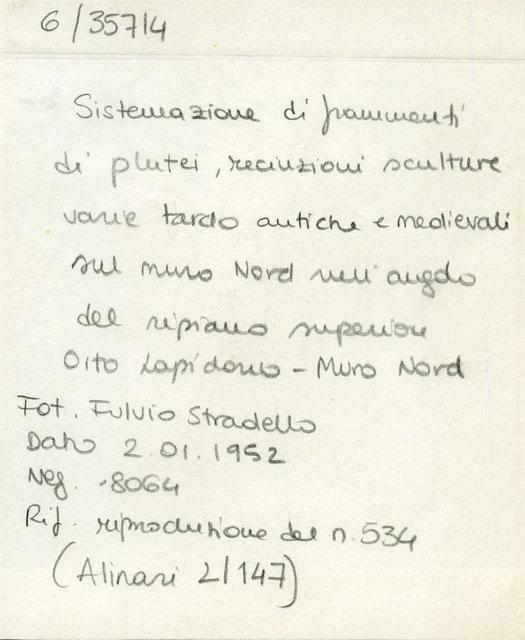 6/35714
Sistemazione di frammenti
di plutei, recinzioni sculture
varie tardo antiche e medievali
sul muro Nord nell'angolo
del ripiano superiore
Orto Lapidario - Muro Nord
Fot. Fulvio Stradello
Data 2.01.1952
Neg. 8064
Rif. riproduzione del n. 534
(Alinari 2/147)